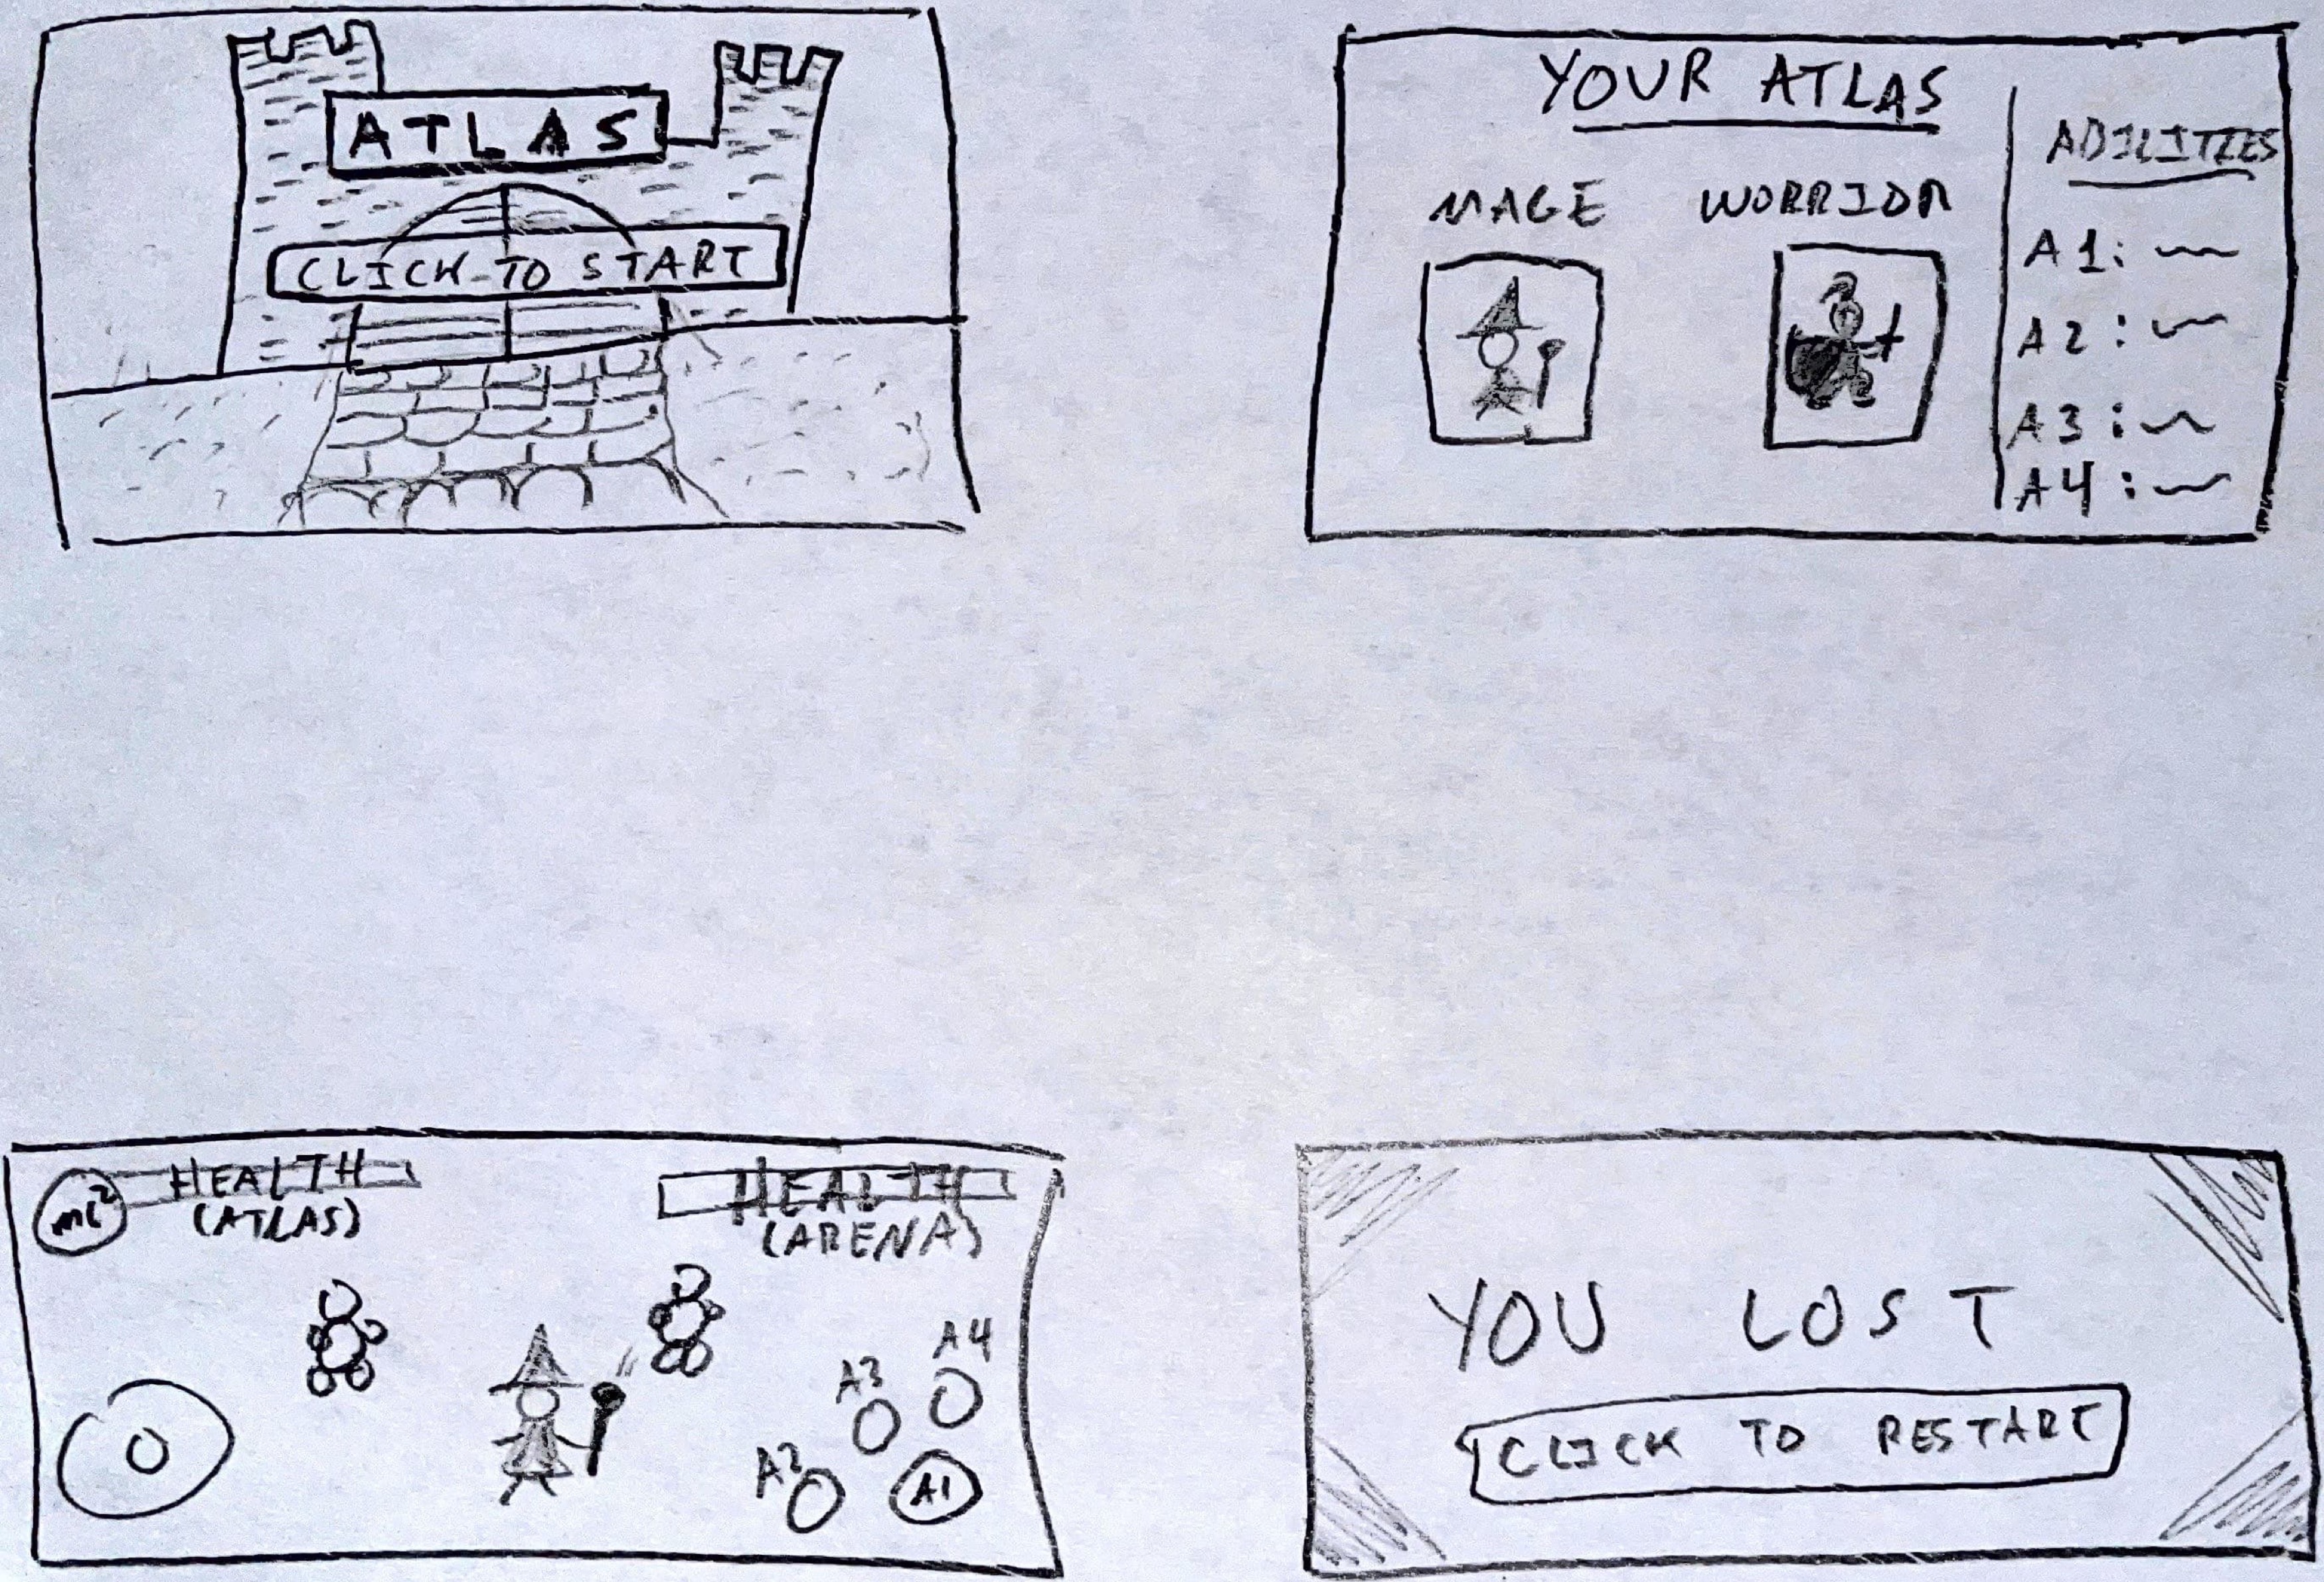 ATLAS
CLICK TO START
YOUR ATLAS
MAGE
WORRIOR
ABILITIES
A1:
A2:
A3:
A4:
HEALTH
(ATLAS)
HEALTH
(ARENA)
A4
A3
A2
A1
YOU LOST
CLICK TO RESTART